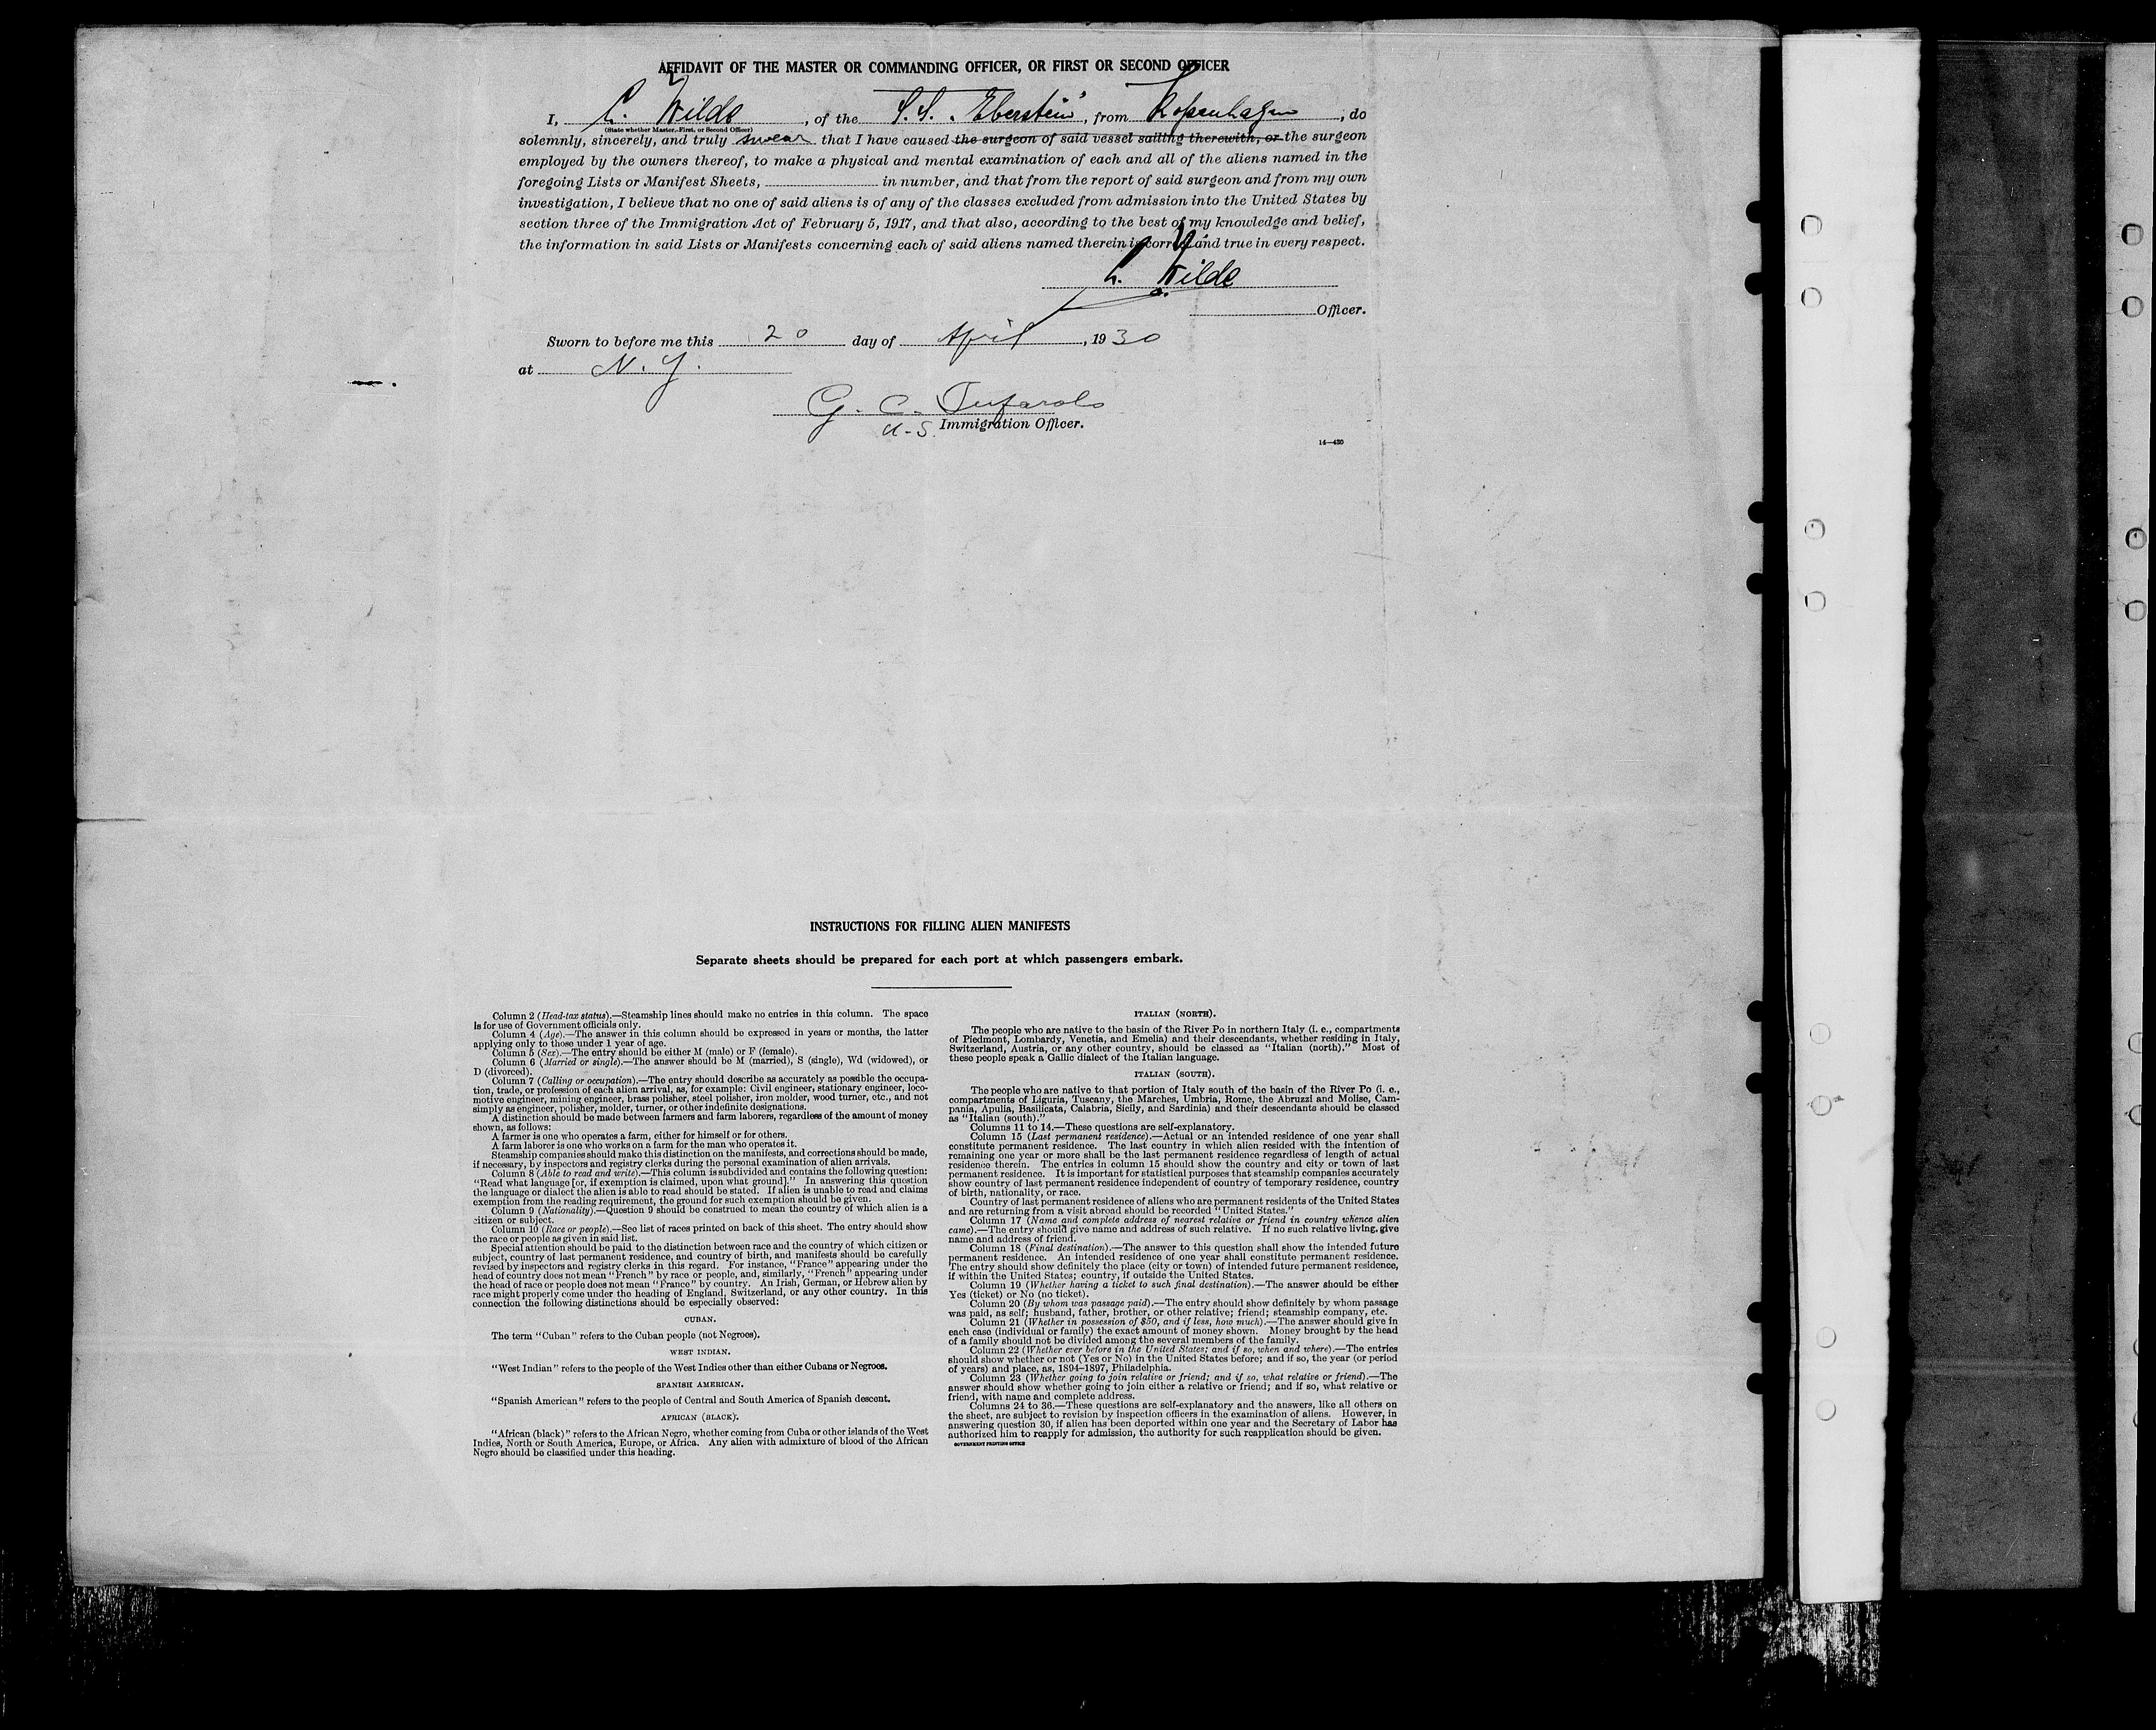 AFFIDAVIT OF THE MASTER OR COMMANDING OFFICER, OR FIRST OR SECOND OFFICER
I, C. Wilde, of the S.S. "Eberstein", from Kopenhagen, do
(State whether Master, First, or Second Officer)
solemnly, sincerely, and truly swear that I have caused the surgeon of said vessel sailing therewith, or the surgeon
employed by the owners thereof, to make a physical and mental examination of each and all of the aliens named in the
foregoing Lists or Manifest Sheets, in number, and that from the report of said surgeon and from my own
investigation, I believe that no one of said aliens is of any of the classes excluded from admission into the United States by
section three of the Immigration Act of February 5, 1917, and that also, according to the best of my knowledge and belief,
the information in said Lists or Manifests concerning each of said aliens named therein is correct and true in every respect.
C. Wilde
Officer.
Sworn to before me this 20 day of April, 1930
at N. Y.
G. C.
U.S. Immigration Officer.
14—430
INSTRUCTIONS FOR FILLING ALIEN MANIFESTS
Separate sheets should be prepared for each port at which passengers embark.
Column 2 (Head-tax status).—Steamship lines should make no entries in this column. The space
is for use of Government officials only.
Column 4 (Age).—The answer in this column should be expressed in years or months, the latter
applying only to those under 1 year of age.
Column 5 (Sex).—The entry should be either M (male) or F (female).
Column 6 (Married or single).—The answer should be M (married), S (single), Wd (widowed), or
D (divorced).
Column 7 (Calling or occupation).—The entry should describe as accurately as possible the occupa-
tion, trade, or profession of each alien arrival, as, for example: Civil engineer, stationary engineer, loco-
motive engineer, mining engineer, brass polisher, steel polisher, iron molder, wood turner, etc., and not
simply as engineer, polisher, molder, turner, or other indefinite designations.
A distinction should be made between farmers and farm laborers, regardless of the amount of money
shown, as follows:
A farmer is one who operates a farm, either for himself or for others.
A farm laborer is one who works on a farm for the man who operates it.
Steamship companies should make this distinction on the manifests, and corrections should be made,
if necessary, by inspectors and registry clerks during the personal examination of alien arrivals.
Column 8 (Able to read and write).—This column is subdivided and contains the following question:
"Read what language [or, if exemption is claimed, upon what ground]." In answering this question
the language or dialect the alien is able to read should be stated. If alien is unable to read and claims
exemption from the reading requirement, the ground for such exemption should be given.
Column 9 (Nationality).—Question 9 should be construed to mean the country of which alien is a
citizen or subject.
Column 10 (Race or people).—See list of races printed on back of this sheet. The entry should show
the race or people as given in said list.
Special attention should be paid to the distinction between race and the country of which citizen or
subject, country of last permanent residence, and country of birth, and manifests should be carefully
revised by inspectors and registry clerks in this regard. For instance, "France" appearing under the
head of country does not mean "French" by race or people, and, similarly, "French" appearing under
the head of race or people does not mean "France" by country. An Irish, German, or Hebrew alien by
race might properly come under the heading of England, Switzerland, or any other country. In this
connection the following distinctions should be especially observed:
CUBAN.
The term "Cuban" refers to the Cuban people (not Negroes).
WEST INDIAN.
"West Indian" refers to the people of the West Indies other than either Cubans or Negroes.
SPANISH AMERICAN.
"Spanish American" refers to the people of Central and South America of Spanish descent.
AFRICAN (BLACK).
"African (black)" refers to the African Negro, whether coming from Cuba or other islands of the West
Indies, North or South America, Europe, or Africa. Any alien with admixture of blood of the African
Negro should be classified under this heading.
ITALIAN (NORTH).
The people who are native to the basin of the River Po in northern Italy (i. e., compartments
of Piedmont, Lombardy, Venetia, and Emelia) and their descendants, whether residing in Italy,
Switzerland, Austria, or any other country, should be classed as "Italian (north)." Most of
these people speak a Gallic dialect of the Italian language.
ITALIAN (SOUTH).
The people who are native to that portion of Italy south of the basin of the River Po (i. e.,
compartments of Liguria, Tuscany, the Marches, Umbria, Rome, the Abruzzi and Molise, Cam-
pania, Apulia, Basilicata, Calabria, Sicily, and Sardinia) and their descendants should be classed
as "Italian (south)."
Columns 11 to 14.—These questions are self-explanatory.
Column 15 (Last permanent residence).—Actual or an intended residence of one year shall
constitute permanent residence. The last country in which alien resided with the intention of
remaining one year or more shall be the last permanent residence regardless of length of actual
residence therein. The entries in column 15 should show the country and city or town of last
permanent residence. It is important for statistical purposes that steamship companies accurately
show country of last permanent residence independent of country of temporary residence, country
of birth, nationality, or race.
Country of last permanent residence of aliens who are permanent residents of the United States
and are returning from a visit abroad should be recorded "United States."
Column 17 (Name and complete address of nearest relative or friend in country whence alien
came).—The entry should give name and address of such relative. If no such relative living, give
name and address of friend.
Column 18 (Final destination).—The answer to this question shall show the intended future
permanent residence. An intended residence of one year shall constitute permanent residence.
The entry should show definitely the place (city or town) of intended future permanent residence,
if within the United States; country, if outside the United States.
Column 19 (Whether having a ticket to such final destination).—The answer should be either
Yes (ticket) or No (no ticket).
Column 20 (By whom was passage paid).—The entry should show definitely by whom passage
was paid, as self; husband, father, brother, or other relative; friend; steamship company, etc.
Column 21 (Whether in possession of $50, and if less, how much).—The answer should give in
each case (individual or family) the exact amount of money shown. Money brought by the head
of a family should not be divided among the several members of the family.
Column 22 (Whether ever before in the United States; and if so, when and where).—The entries
should show whether or not (Yes or No) in the United States before; and if so, the year (or period
of years) and place, as, 1894–1897, Philadelphia.
Column 23 (Whether going to join relative or friend; and if so, what relative or friend).—The
answer should show whether going to join either a relative or friend; and if so, what relative or
friend, with name and complete address.
Columns 24 to 36.—These questions are self-explanatory and the answers, like all others on
the sheet, are subject to revision by inspection officers in the examination of aliens. However, in
answering question 30, if alien has been deported within one year and the Secretary of Labor has
authorized him to reapply for admission, the authority for such reapplication should be given.
GOVERNMENT PRINTING OFFICE